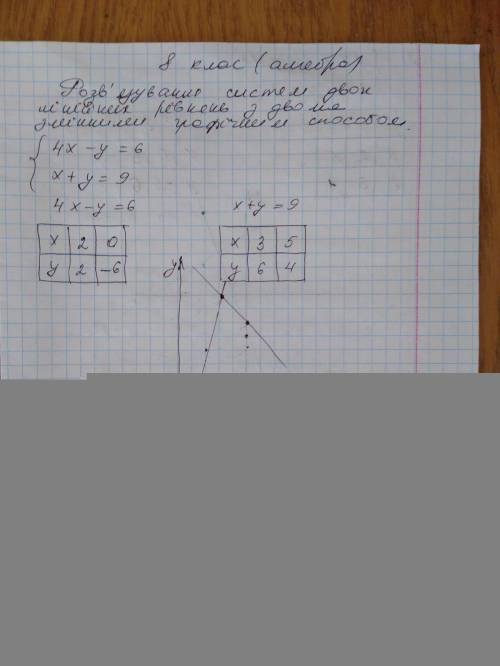 8 клас (алгебра)
Розв'язування систем двох
лінійних рівнень з двома
змінними графічним способом.
4x - y = 6
x + y = 9
4x - y = 6 x + y = 9
x 2 0 x 3 5
y 2 -6 y 6 4
y